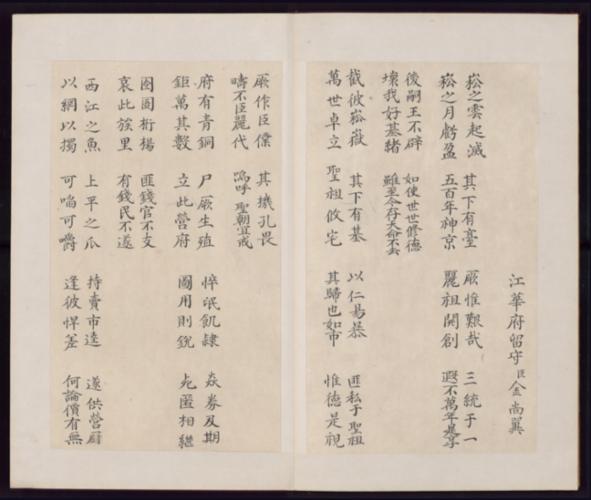 江華府留守臣金尚翼
崧之雲起滅 其下有臺 厥惟艱哉 三統于一
崧之月虧盈 五百年神京 麗祖開創 遐不萬年
後嗣王不辟 如使世世修德
壞我好基緖 雖至今存大命不去
截彼崧嶽 其下有基 以仁易恭 匪私于聖祖
萬世卓立 聖祖攸宅 其歸也如市 惟德是視
厥作臣僕 其壞孔畏
疇不臣麗代 嗚呼 聖朝宜戒
府有青銅 尸厥生殖 悴氓飢隸 焱券及期
鉅萬其數 立此營府 國用則銳 匿相繼
囹圄桁楊 匪錢官不支
哀此簇里 有錢民不遂
西江之魚 上平之瓜 持賣市逵 遂供營厨
以網以擉 可啗可嚼 逢彼悍差 何論價有無